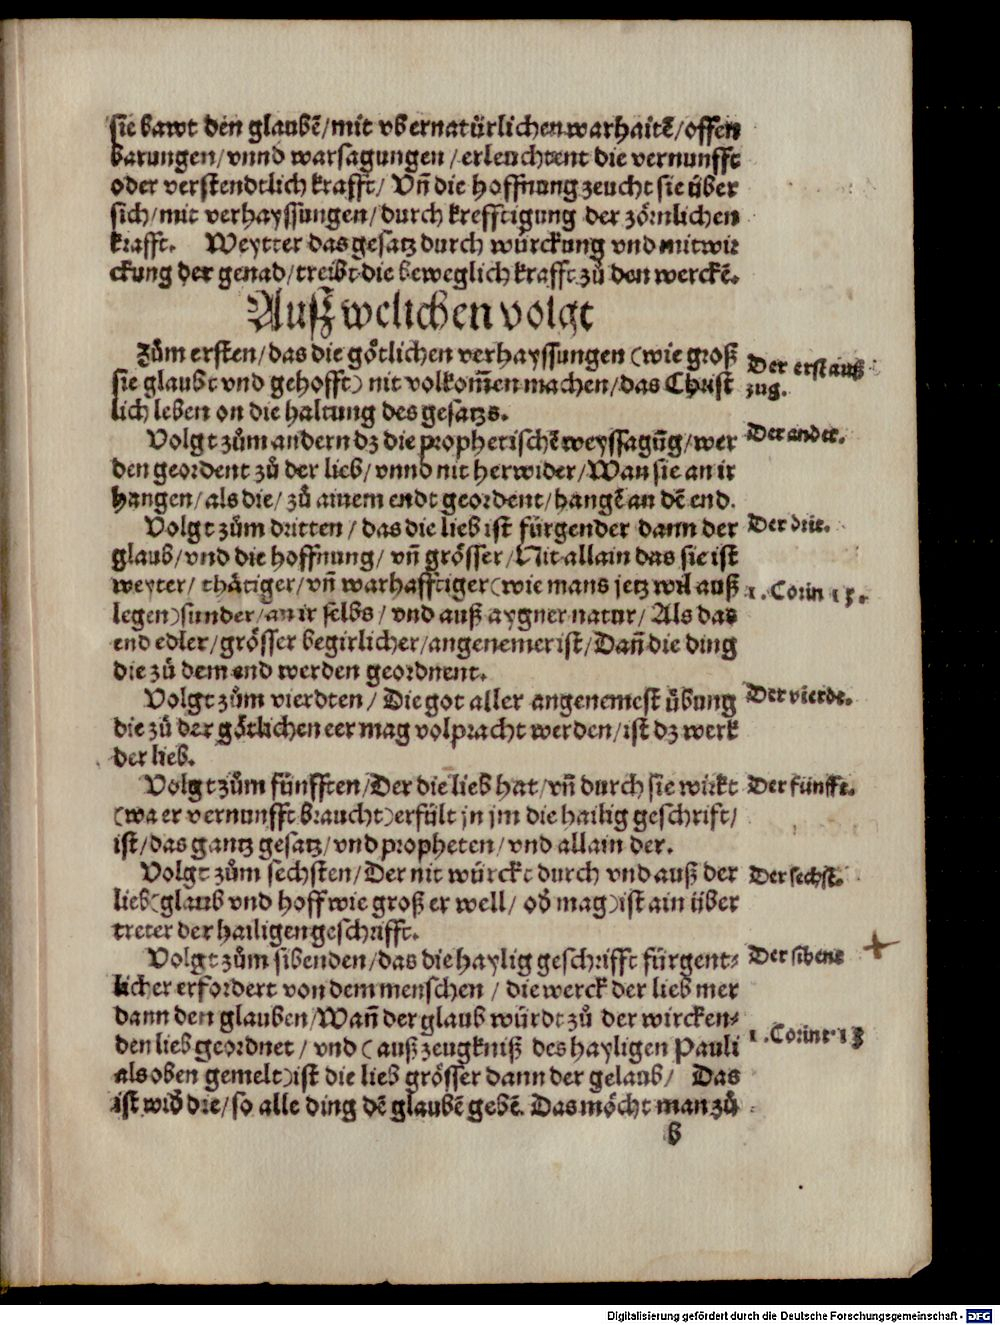 sie bawt den glaubē/mit vbernatürlichen warhaitē/offen
barungen/vnnd warsagungen/erleuchtent die vernunfft
oder verstendtlich krafft/ Vñ die hoffnung zeucht sie über
sich/mit verhayssungen/durch krefftigung der zörnlichen
krafft. Weytter das gesatz durch würckung vnd mitwir
ckung der genad/treibt die beweglich krafft zů den werckē.
Außz welichen volgt
Zům ersten/das die götlichen verhayssungen (wie groß
sie glaubt vnd gehofft) nit volkom̄en machen/das Christ
lich leben on die haltung des gesatzs.
Der erst auß
zug.
Volgt zům andern dz die prophetischē weyssagūg/wer
den geordent zů der lieb/vnnd nit herwider/Wan sie an ir
hangen/als die/zů ainem endt geordent/hangē an dē end.
Der ander.
Volgt zům dritten/das die lieb ist fürgender dann der
glaub/vnd die hoffnung/vñ grösser/Nit allain das sie ist
weyter/thätiger/vñ warhafftiger(wie mans jetz wil auß
legen)sunder/an ir selbs/vnd auß aygner natur/Als das
end edler/grösser begirlicher/angenemer ist/Dañ die ding
die zů dem end werden geordnent.
Der drit.
1. Corin 13.
Volgt zům vierdten/Die got aller angenemest übung
die zů der götlichen eer mag volpracht werden/ist dz werk
der lieb.
Der vierde.
Volgt zům fünfften/Der die lieb hat/vñ durch sie wirkt
(wa er vernunfft braucht)erfült jn jm die hailig geschrift/
ist/das gantz gesatz/vnd propheten/vnd allain der.
Der fünfft.
Volgt zům sechsten/Der nit würckt durch vnd auß der
lieb(glaub vnd hoff wie groß er well/ oð mag)ist ain über
treter der hailigen geschrifft.
Der sechst.
Volgt zům sibenden/das die haylig geschrifft fürgent⸗
licher erfordert von dem menschen/die werck der lieb mer
dann den glauben/Wañ der glaub würdt zů der wircken⸗
den lieb geordnet/vnd(auß zeugkniß des hayligen Pauli
als oben gemelt)ist die lieb grösser dann der gelaub/ Das
ist wið die/so alle ding dē glaubē gebē. Das möcht man zů
Der sibent
1. Corint 13
b
Digitalisierung gefördert durch die Deutsche Forschungsgemeinschaft - DFG